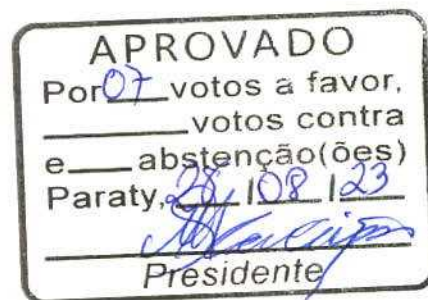 APROVADO
Por 07 votos a favor,
______ votos contra
e___ abstenção(ões)
Paraty, 28 / 08 / 23
Presidente